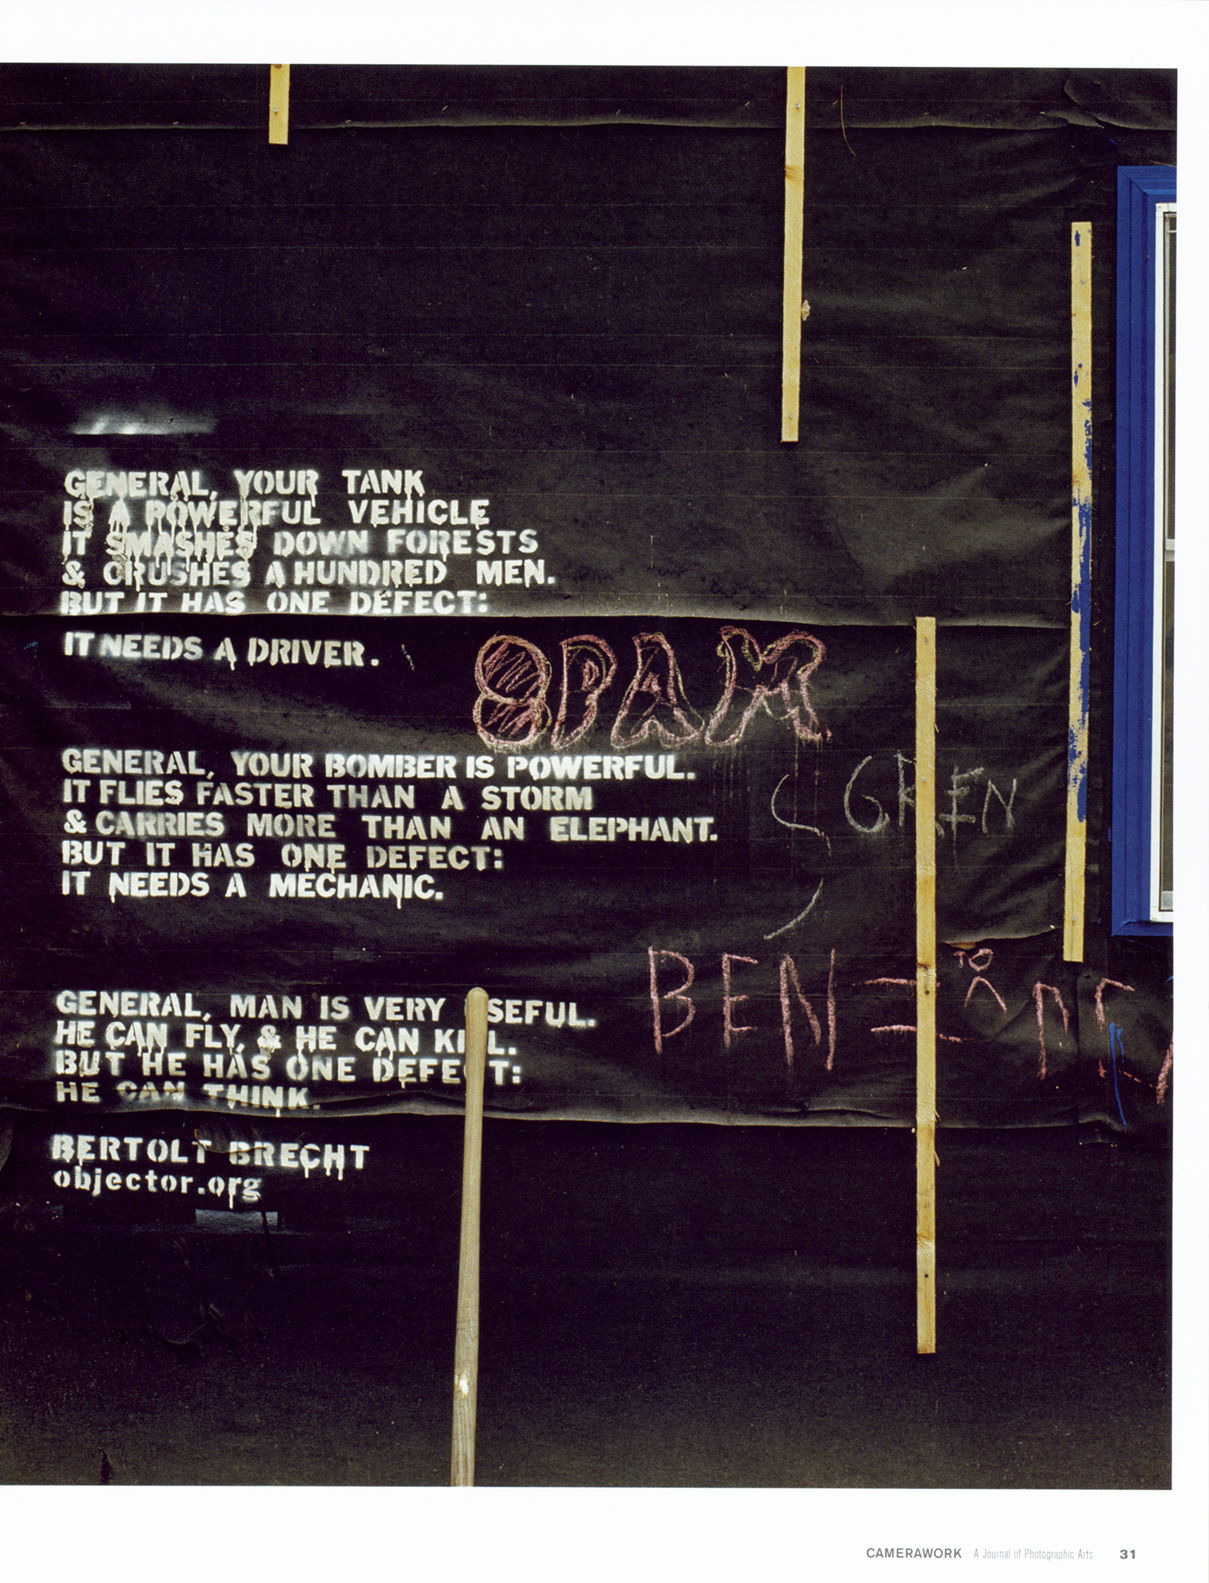 GENERAL, YOUR TANK
IS A POWERFUL VEHICLE
IT SMASHES DOWN FORESTS
& CRUSHES A HUNDRED MEN.
BUT IT HAS ONE DEFECT:
IT NEEDS A DRIVER.
SPAM
GENERAL, YOUR BOMBER IS POWERFUL.
IT FLIES FASTER THAN A STORM
& CARRIES MORE THAN AN ELEPHANT.
BUT IT HAS ONE DEFECT:
IT NEEDS A MECHANIC.
BEN
GENERAL, MAN IS VERY SEFUL.
HE CAN FLY, & HE CAN KILL.
BUT HE HAS ONE DEFECT:
HE CAN THINK.
BERTOLT BRECHT
objector.org
CAMERAWORK A Journal of Photographic Arts 31